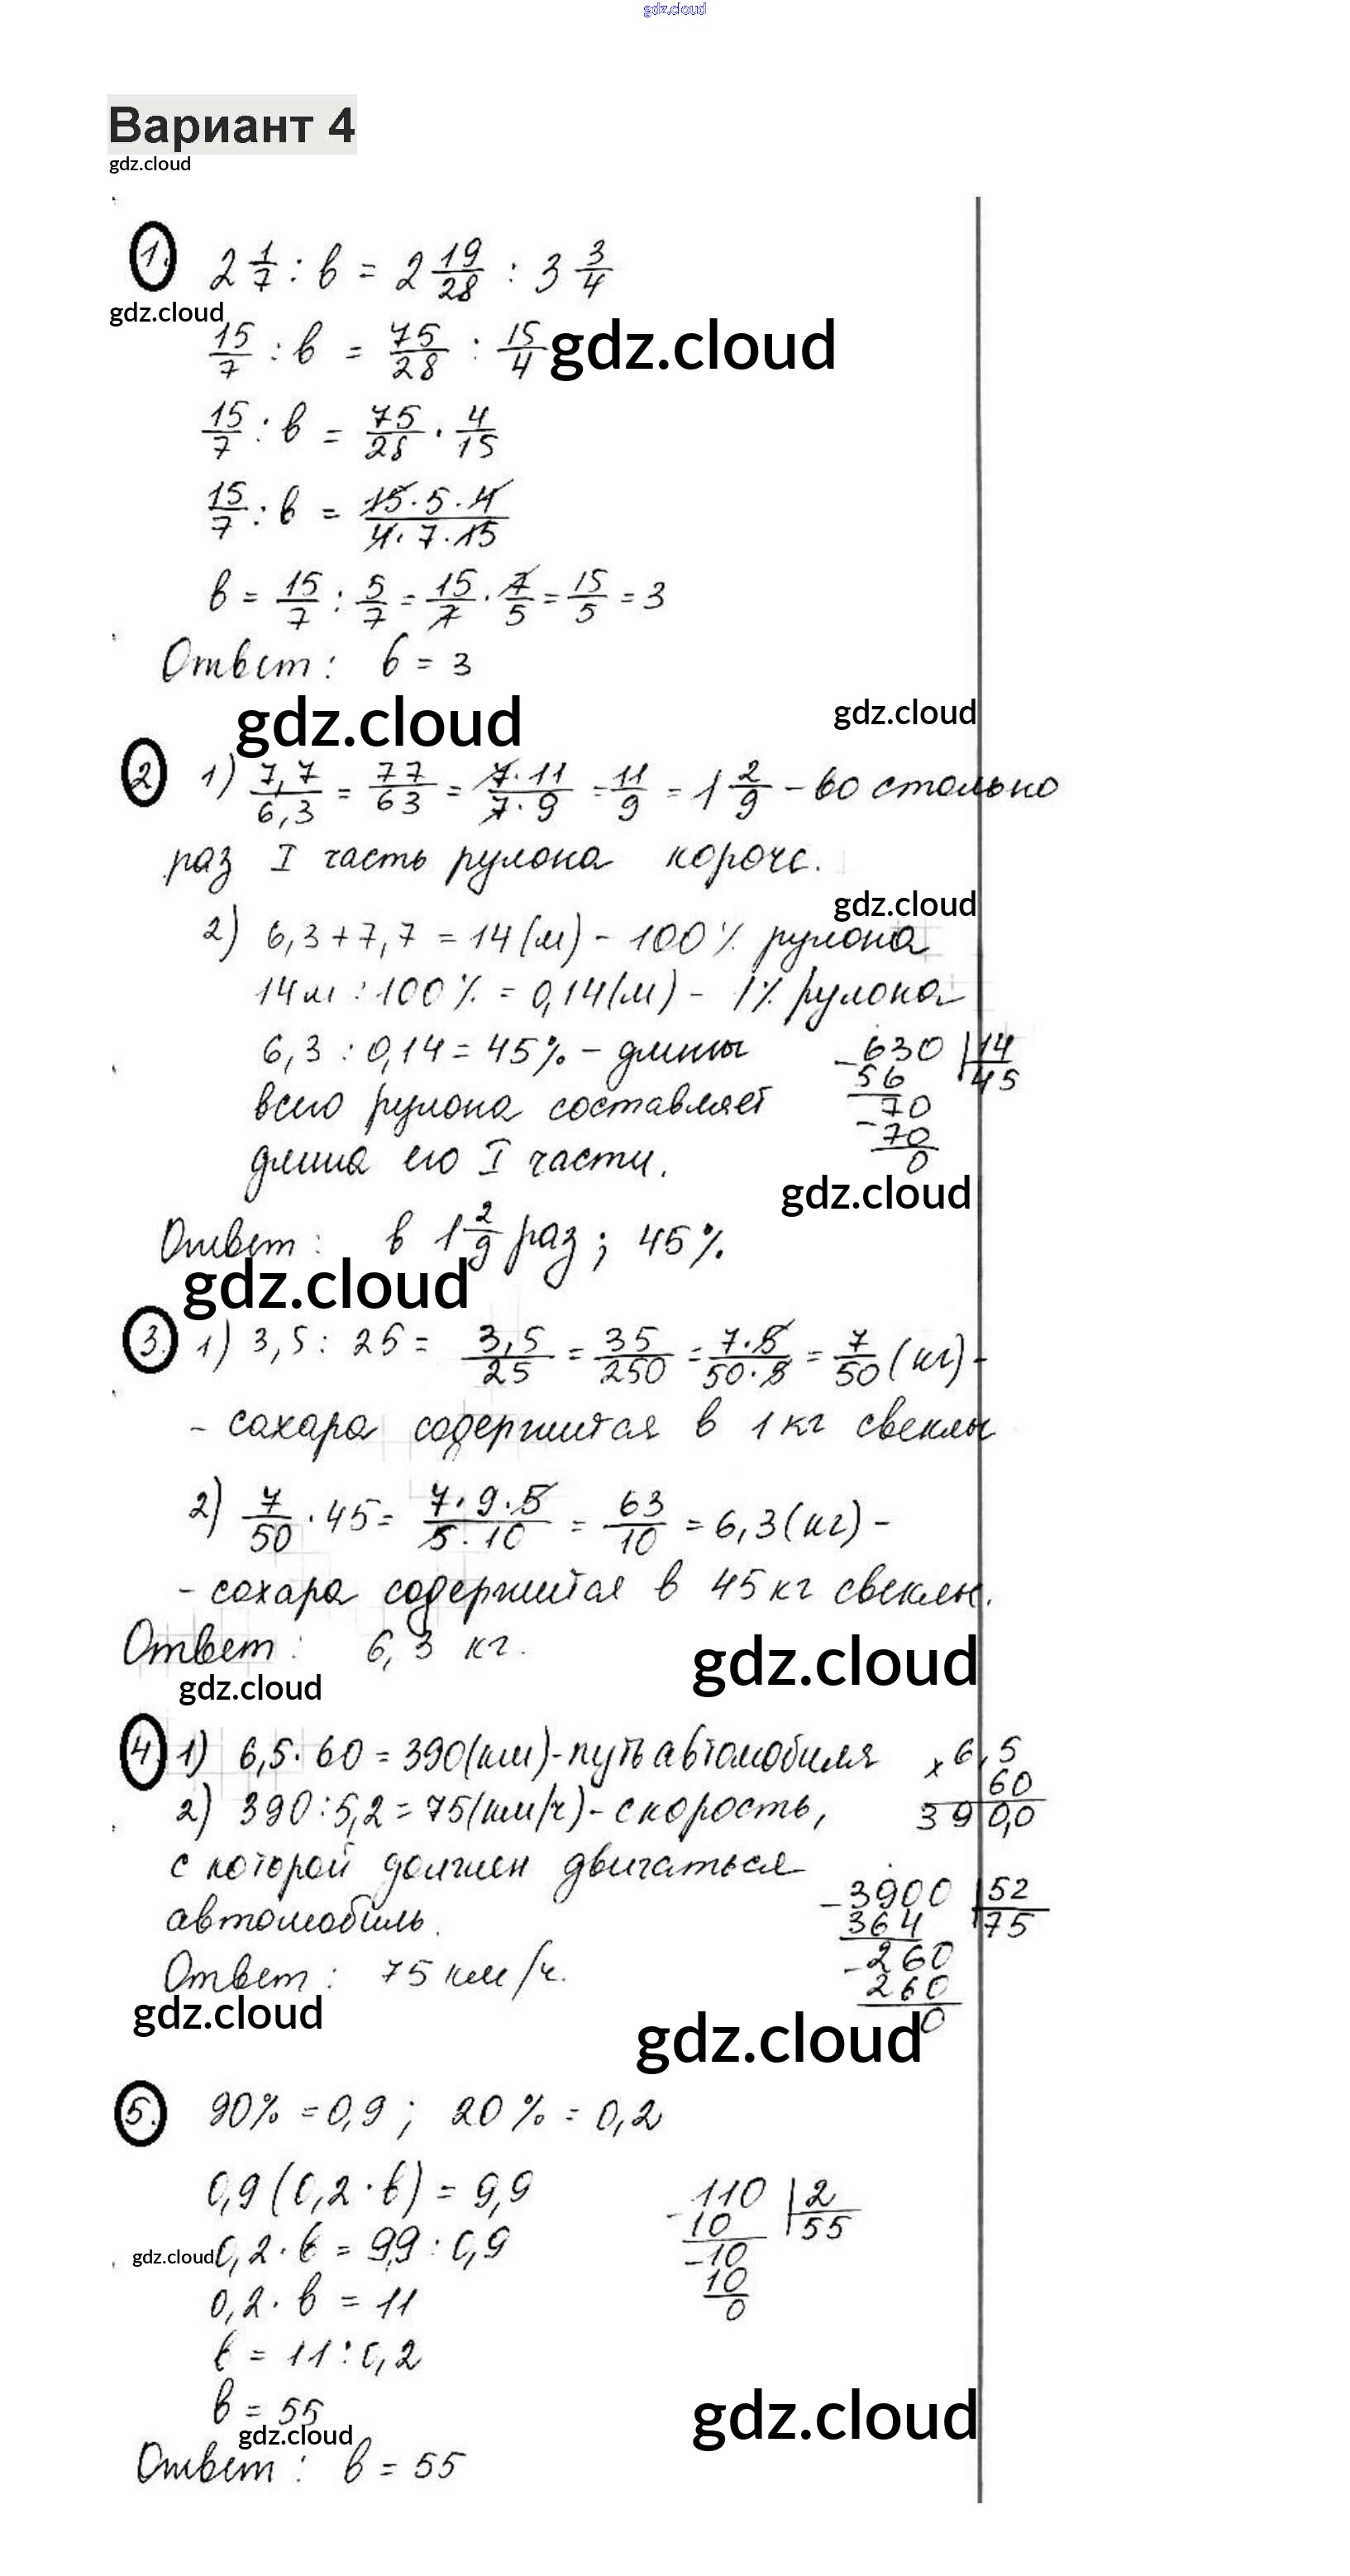 gdz.cloud
Вариант 4
gdz.cloud
1. 2 1/7 : в = 2 19/28 : 3 3/4
gdz.cloud
15/7 : в = 75/28 : 15/4
gdz.cloud
15/7 : в = 75/28 · 4/15
15/7 : в = 15·5·4/4·7·15
в = 15/7 : 5/7 = 15/7 · 7/5 = 15/5 = 3
Ответ: в = 3
gdz.cloud
gdz.cloud
2 1) 7,7/6,3 = 77/63 = 7·11/7·9 = 11/9 = 1 2/9 – во столько
раз I часть рулона короче.
gdz.cloud
2) 6,3+7,7 = 14(м) – 100% рулона
14м : 100% = 0,14(м) – 1% рулона
6,3 : 0,14 = 45% – длины
всего рулона составляет
длина его I части.
630 |14
– 56 45
70
– 70
0
gdz.cloud
Ответ: в 1 2/9 раз; 45%.
gdz.cloud
3. 1) 3,5 : 25 = 3,5/25 = 35/250 = 7·5/50·5 = 7/50 (кг) –
– сахара содержится в 1кг свеклы
2) 7/50 · 45 = 7·9·5/5·10 = 63/10 = 6,3(кг) –
– сахара содержится в 45кг свеклы.
Ответ: 6,3 кг.
gdz.cloud
gdz.cloud
4 1) 6,5·60 = 390(км)-путь автомобиля
2) 390:5,2 = 75(км/ч)– скорость,
с которой должен двигаться
автомобиль.
Ответ: 75 км/ч.
× 6,5
60
390,0
– 3900 |52
364 75
– 260
260
0
gdz.cloud
gdz.cloud
5. 90% = 0,9; 20% = 0,2
0,9(0,2·в) = 9,9
gdz.cloud
0,2·в = 9,9 : 0,9
0,2·в = 11
в = 11:0,2
в = 55
– 110 |2
10 55
– 10
10
0
gdz.cloud
gdz.cloud
Ответ: в = 55